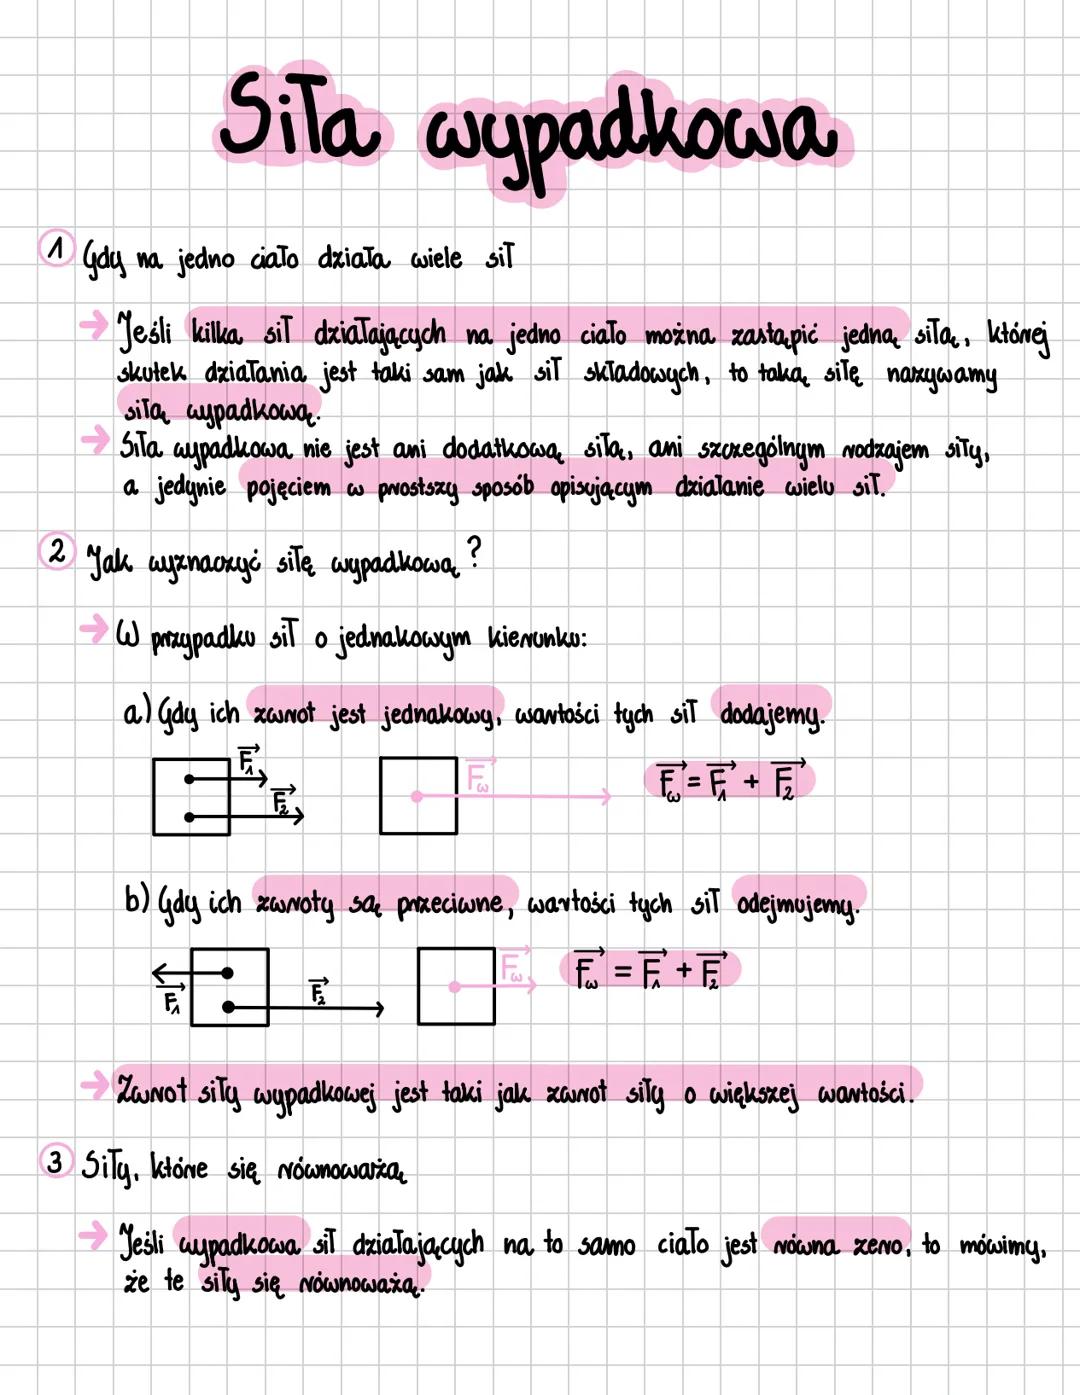 Siła wypadkowa
1 Gdy na jedno ciało działa wiele sił
→ Jeśli kilka sił działających na jedno ciało można zastąpić jedną siłą, której
skutek działania jest taki sam jak sił składowych, to taką siłę nazywamy
siłą wypadkową.
→ Siła wypadkowa nie jest ani dodatkową siłą, ani szczególnym rodzajem siły,
a jedynie pojęciem w prostszy sposób opisującym działanie wielu sił.
2 Jak wyznaczyć siłę wypadkową?
→ W przypadku sił o jednakowym kierunku:
a) Gdy ich zwrot jest jednakowy, wartości tych sił dodajemy.
F₁⃗
F₂⃗
F⃗w
F⃗w = F⃗₁ + F⃗₂
b) Gdy ich zwroty są przeciwne, wartości tych sił odejmujemy.
F⃗₁
F⃗₂
F⃗w
F⃗w = F⃗₁ + F⃗₂
→ Zwrot siły wypadkowej jest taki jak zwrot siły o większej wartości.
3 Siły, które się równoważą
→ Jeśli wypadkowa sił działających na to samo ciało jest równa zero, to mówimy,
że te siły się równoważą.